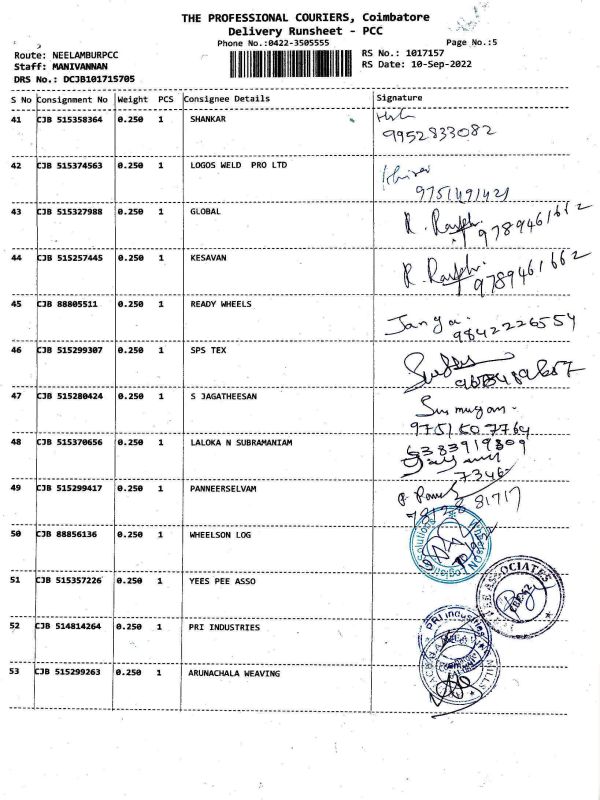 THE PROFESSIONAL COURIERS, Coimbatore
Delivery Runsheet - PCC
Phone No.:0422-3505555
Page No.:5
Route: NEELAMBURPCC
RS No.: 1017157
Staff: MANIVANNAN
RS Date: 10-Sep-2022
DRS No.: DCJB101715705
S No Consignment No Weight PCS Consignee Details Signature
41 CJB 515358364 0.250 1 SHANKAR
9952833082
42 CJB 515374563 0.250 1 LOGOS WELD PRO LTD
9751491421
43 CJB 515327988 0.250 1 GLOBAL
9789461662
44 CJB 515257445 0.250 1 KESAVAN
9789461662
45 CJB 88805511 0.250 1 READY WHEELS
9842226554
46 CJB 515299307 0.250 1 SPS TEX
47 CJB 515280424 0.250 1 S JAGATHEESAN
9751507764
48 CJB 515370656 0.250 1 LALOKA N SUBRAMANIAM
6383919309
49 CJB 515299417 0.250 1 PANNEERSELVAM
50 CJB 88856136 0.250 1 WHEELSON LOG
51 CJB 515357226 0.250 1 YEES PEE ASSO
ASSOCIATES
52 CJB 514814264 0.250 1 PRI INDUSTRIES
PRI Industries
53 CJB 515299263 0.250 1 ARUNACHALA WEAVING
MILLS